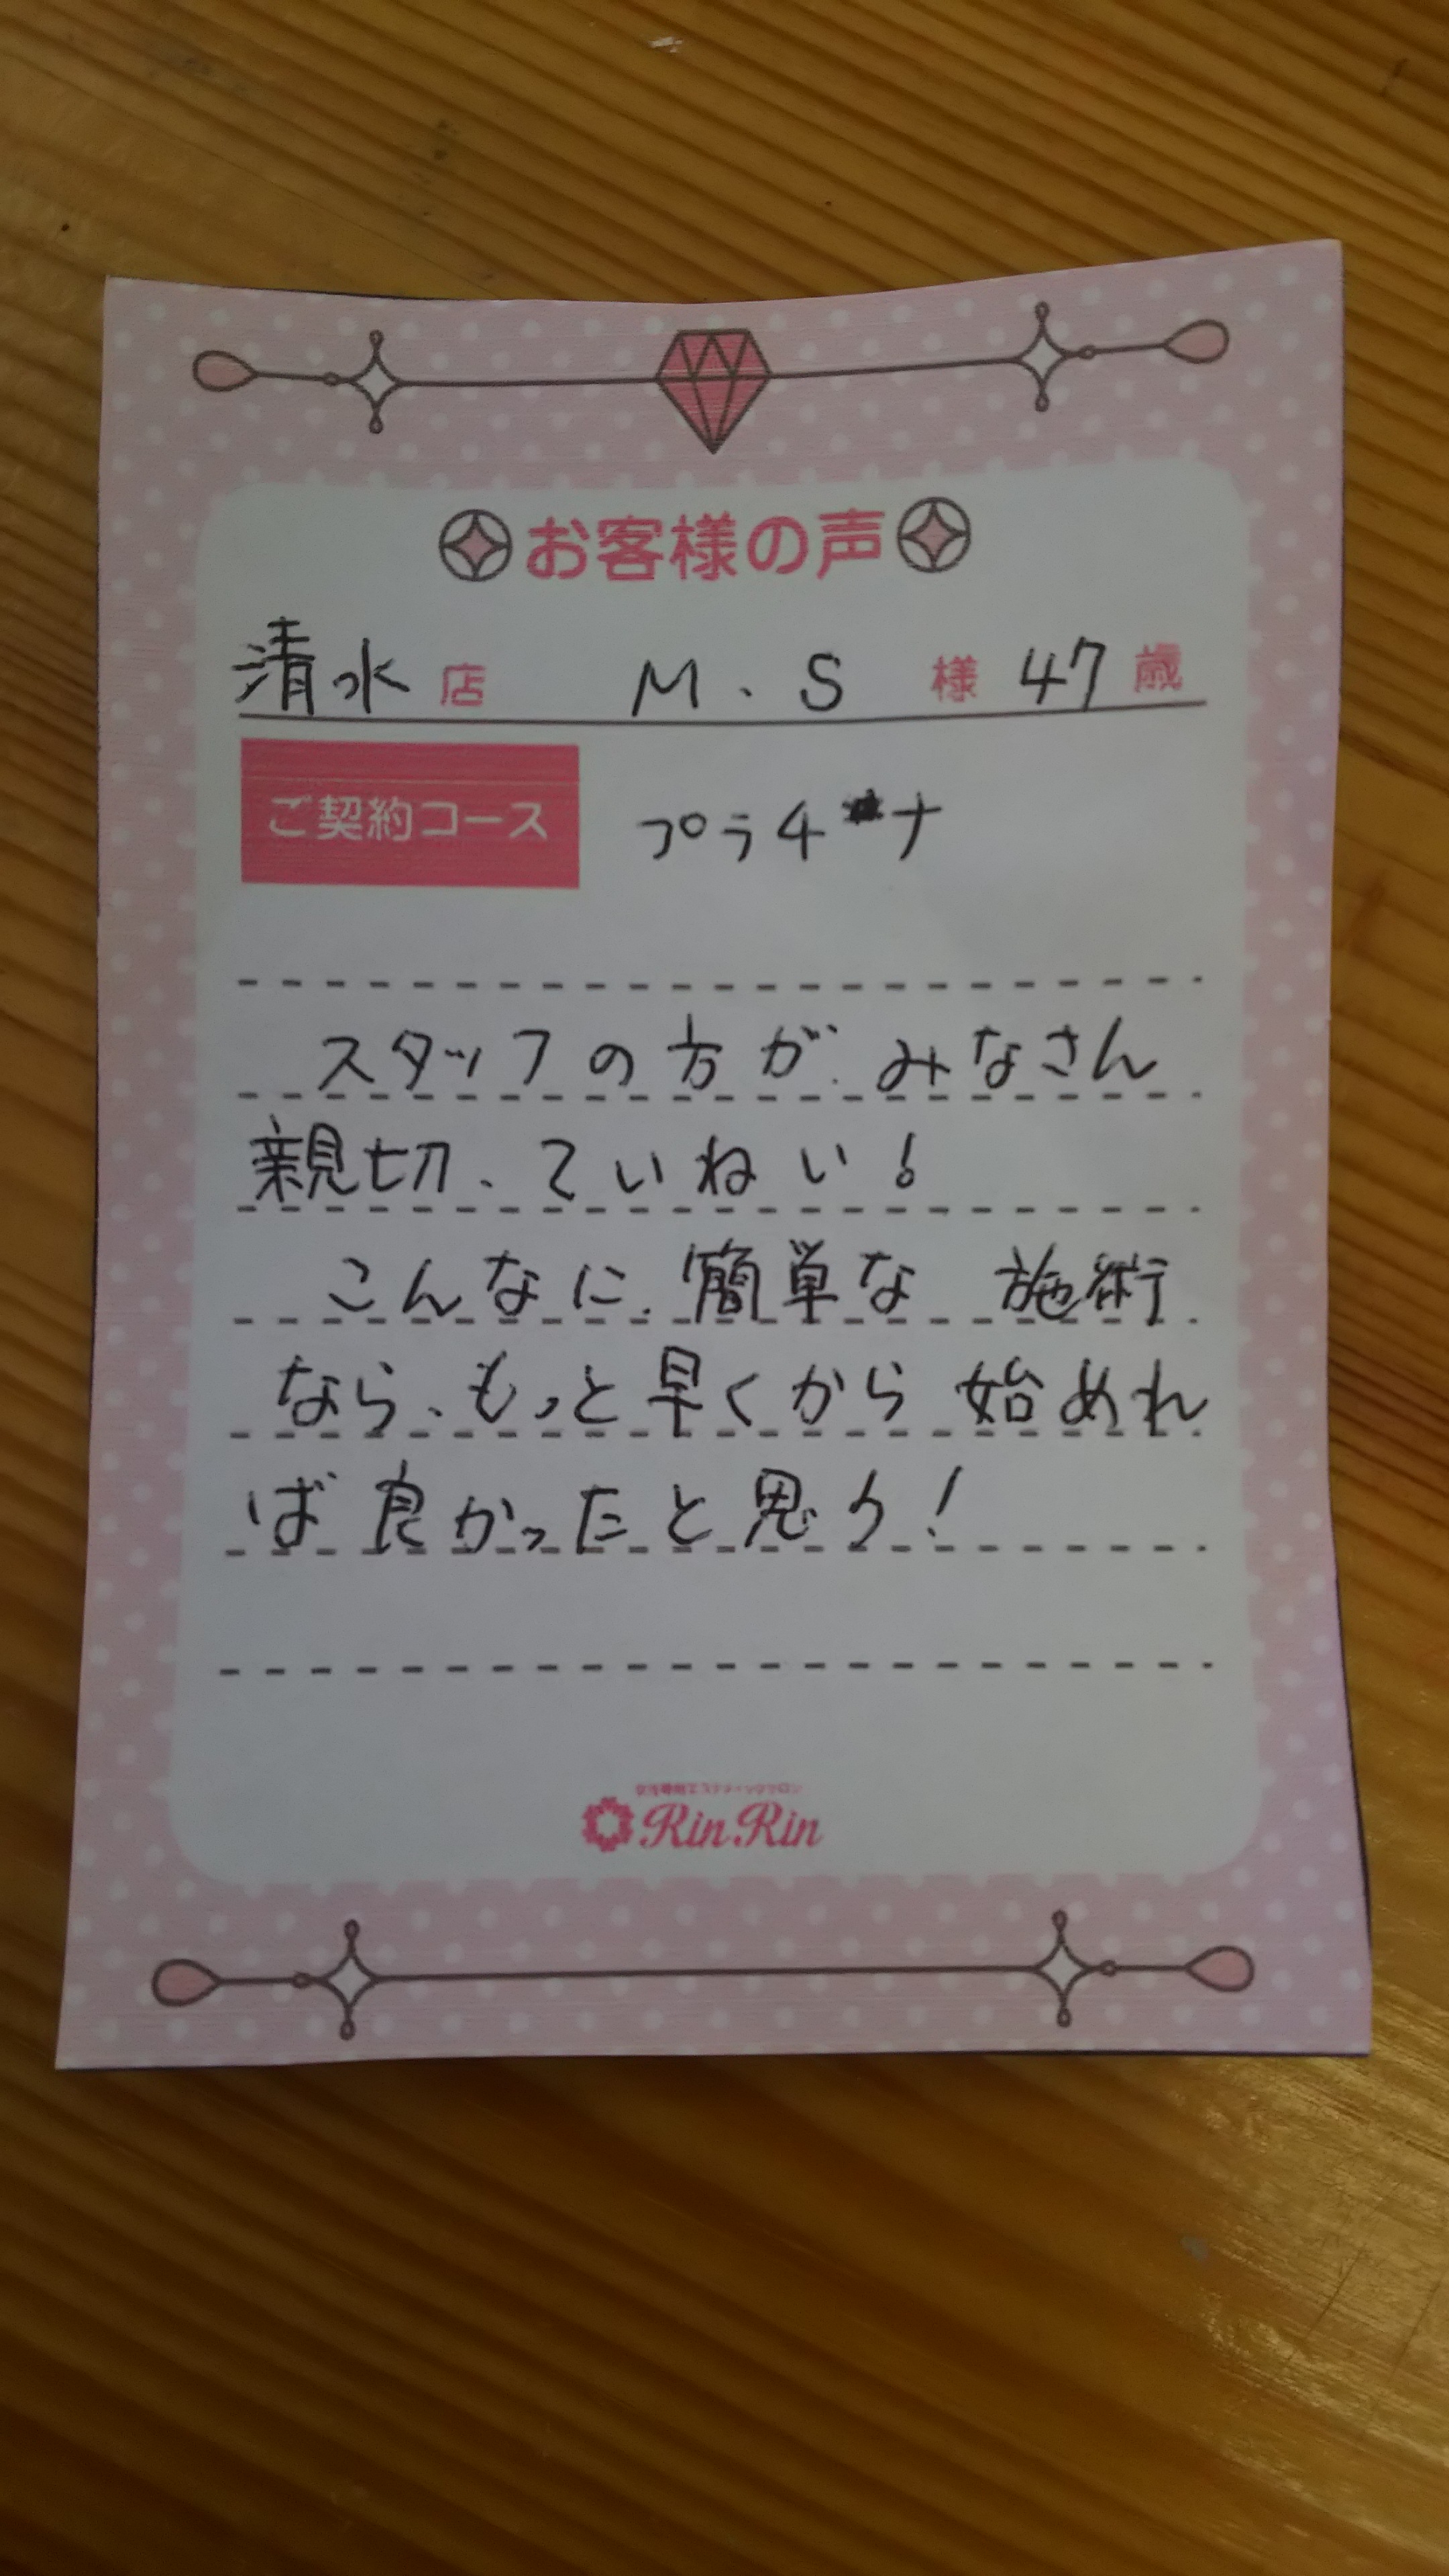 お客様の声
清水店 M.S 様 47歳
ご契約コース プラチナ
スタッフの方が、みなさん
親切、ていねい!
こんなに、簡単な 施術
なら、もっと早くから 始めれ
ば良かったと思う!
女性専用エステティックサロン
RinRin